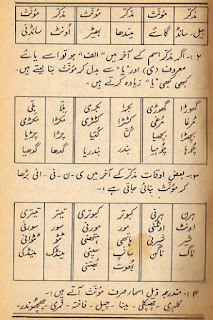 مذکر مؤنث مذکر مؤنث مذکر مؤنث
بیل۔سانڈ گائے مینڈھا بھیڑ اونٹ سانڈنی
۲: اگر مذکر اسم کے آخر میں "الف" ہو تو اسے یائے
معروف (ی) اور "یا" سے بدل کر مؤنث بنا لیتے ہیں۔
کبھی کبھی "یا" زیادہ کرتے ہیں۔
مرغا مرغی بکرا بکری بلا بلی
گھوڑا گھوڑی مکڑا مکڑی
چڑا چڑیا
بندر بندریا گدھا گدھیا
۳: بعض اوقات مذکر کے آخر میں ی۔ن۔نی۔انی بڑھا
کر مؤنث بنائی جاتی ہے۔
ہرن ہرنی کبوتر کبوتری تیتر تیتری
اونٹ اونٹنی سور سورنی
شیر شیرنی ہاتھی ہتھنی مور مورنی
ناگ ناگن بھوت بھتنی مینڈک مینڈکی
۴: مندرجہ ذیل اسما صرف مؤنث آتے ہیں۔
گلہری۔ چھپکلی۔ مینا۔ چیل۔ فاختہ۔ قمری۔ چھچھوندر۔